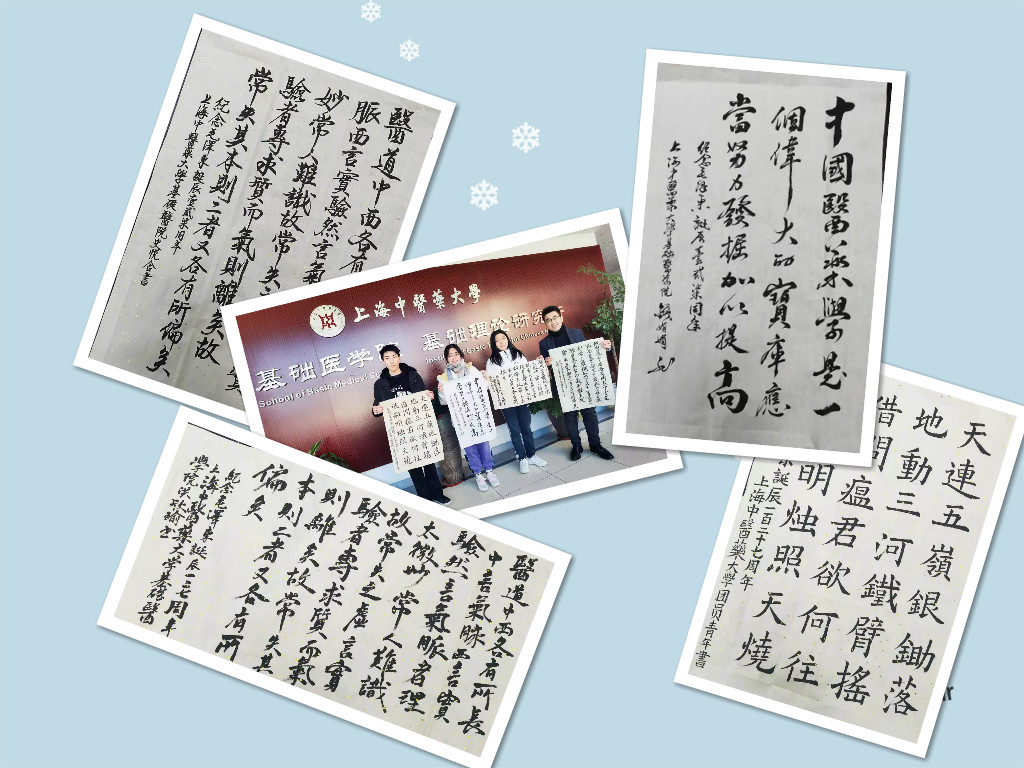 醫道中西各有
脈西言實驗然言氣
妙常人難識故常失
驗者專求質而氣則離矣故
常失其本則二者又各有所偏矣
紀念毛澤東誕辰壹貳柒周年
上海中醫藥大學基礎醫院
中國醫藥學是一
個偉大的寶庫應
當努力發掘加以提高
紀念毛澤東誕辰壹貳柒周年
上海中醫藥大學基礎醫學院
上海中醫藥大學
基础医学院
基础理论研究所
School of Basic Medical
醫道中西各有所長
中言氣脉西言實
驗然言氣脈者理
太微妙常人難識
故常失之虛言實
驗者專求質而氣
則離矣故常失其
本則二者又各有所
偏矣
紀念毛澤東誕辰一二七周年
上海中醫藥大學基礎醫
學院
天連五嶺銀鋤落
地動三河鐵臂搖
借問瘟君欲何往
明烛照天燒
東誕辰一百二十七周年
上海中醫藥大學团员青年書